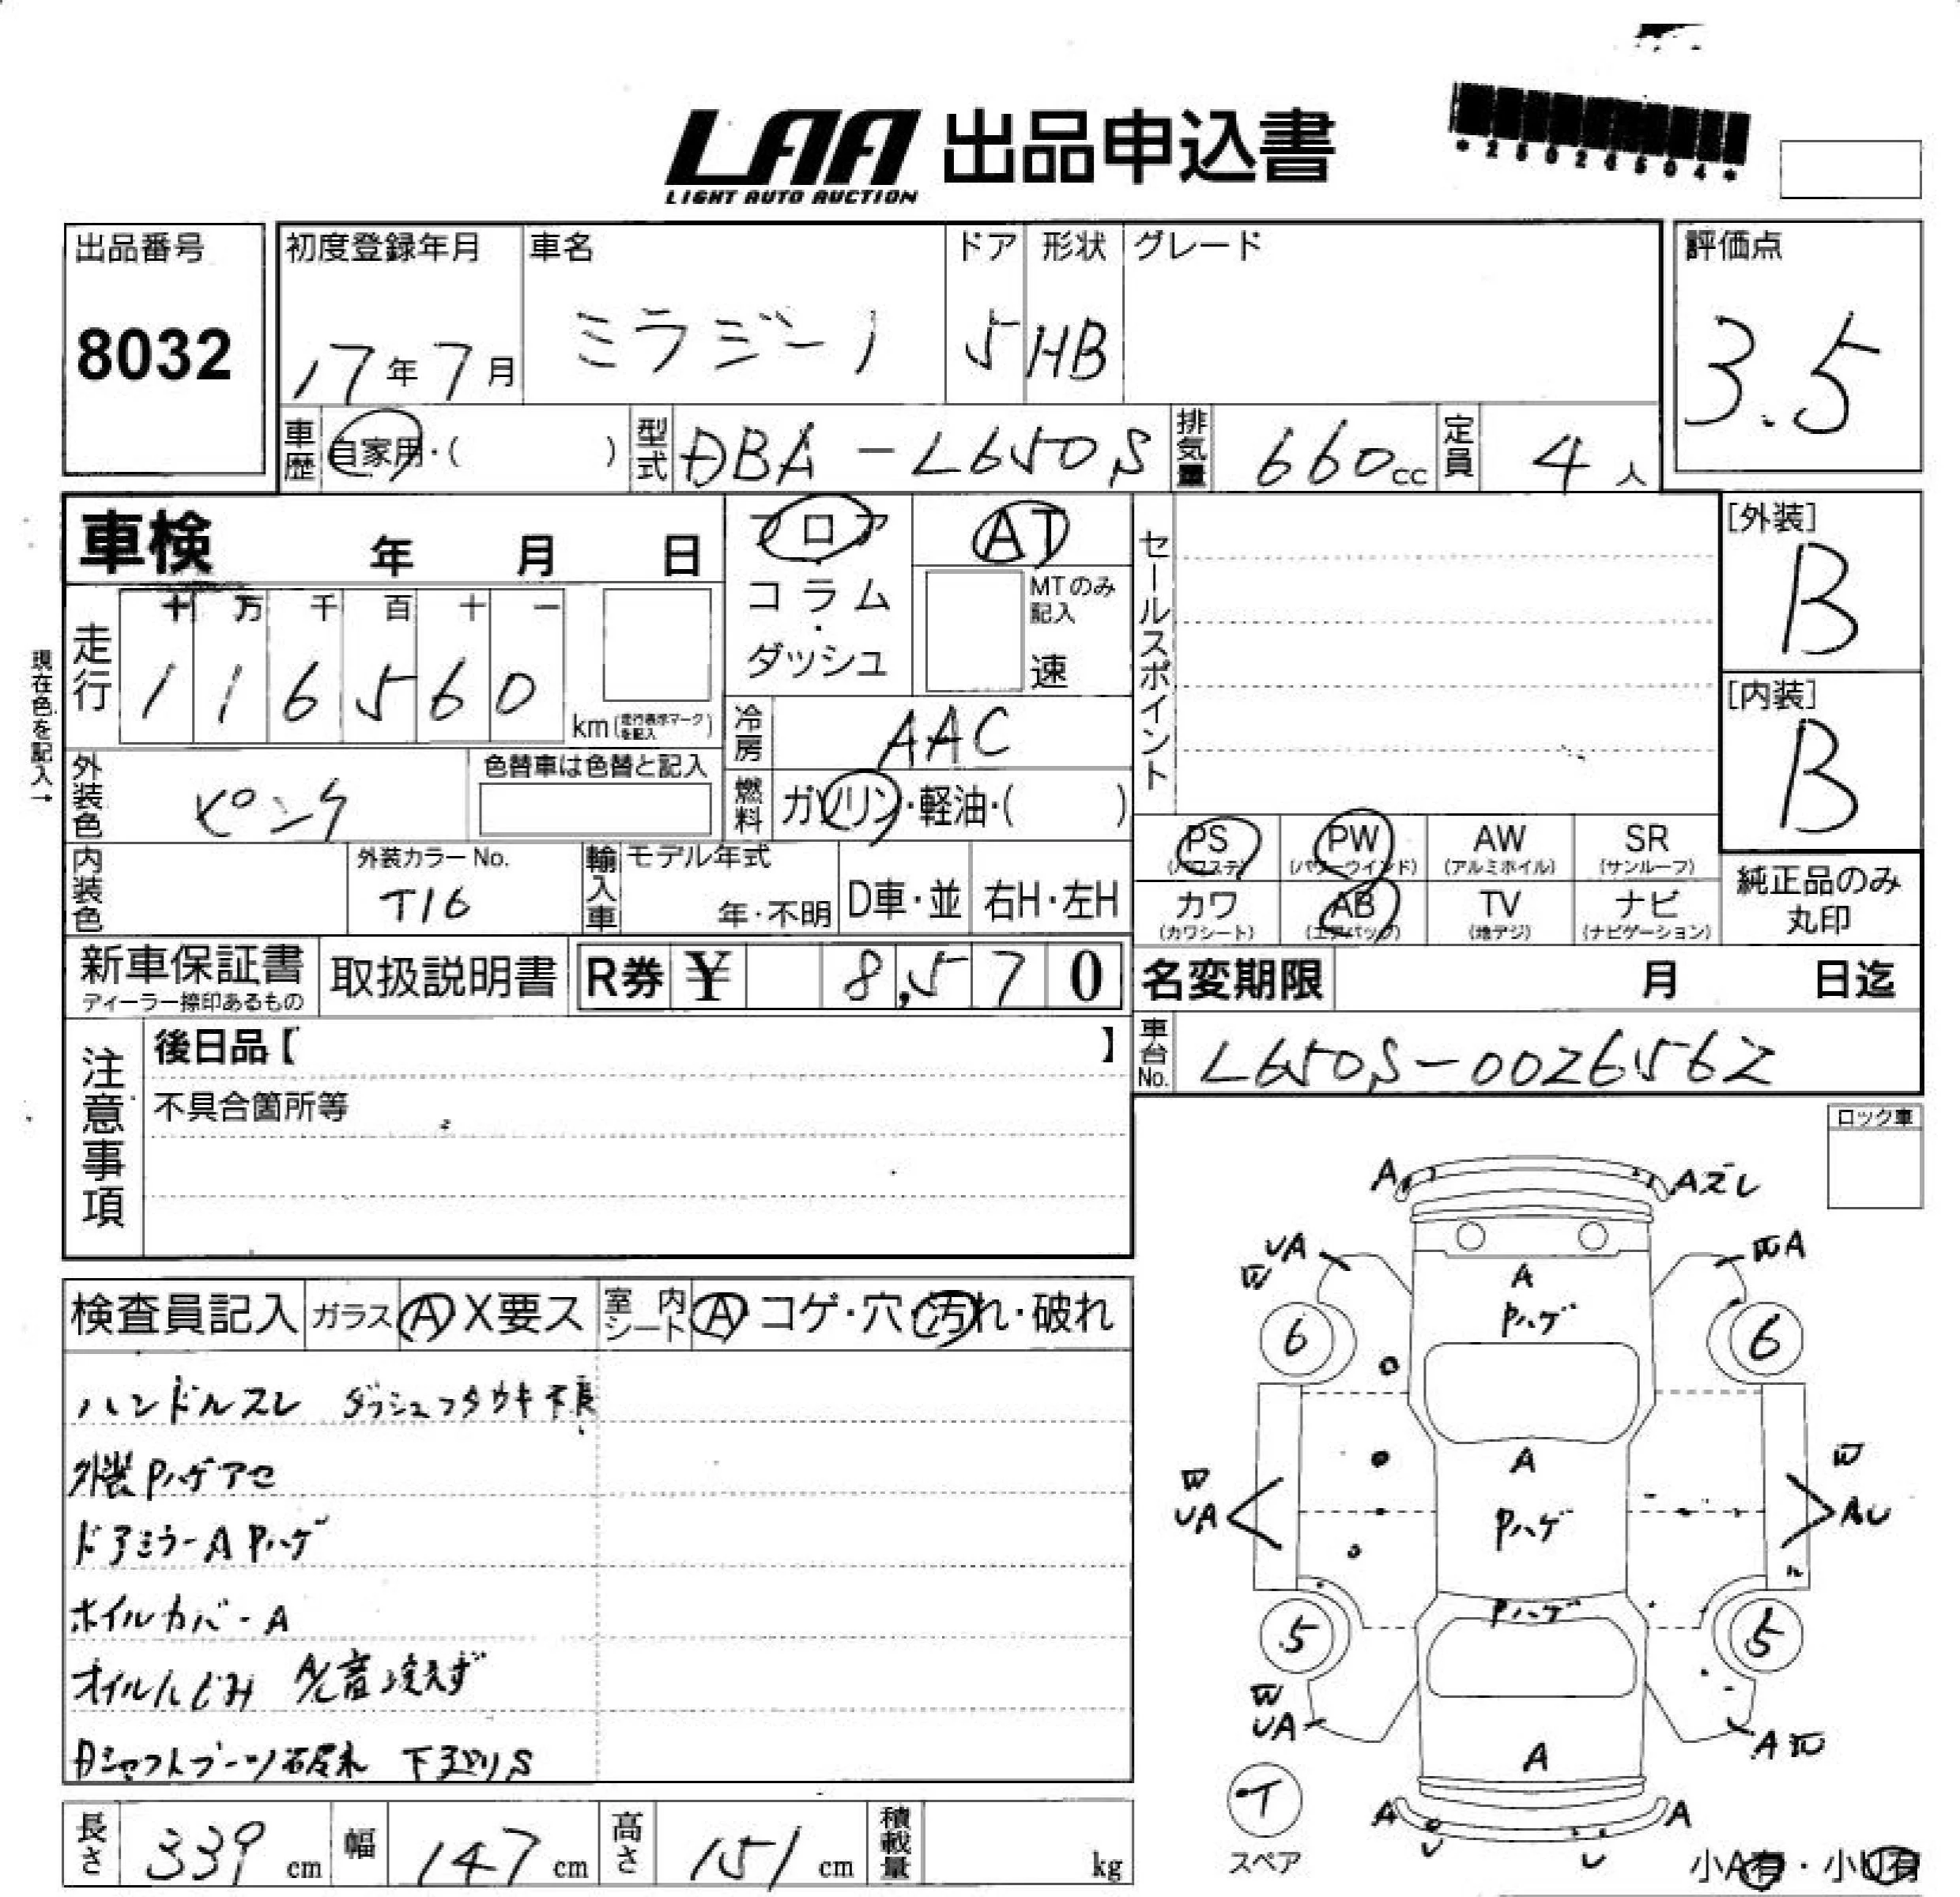 LAA 出品申込書
LIGHT AUTO AUCTION
出品番号
8032
初度登録年月
17年7月
車名
ミラジーノ
ドア
5
形状
HB
グレード
評価点
3.5
車歴
自家用・( )
型式
DBA-L650S
排気量
660cc
定員
4人
車検 年 月 日
フロア
コラム
・
ダッシュ
AT
MTのみ
記入
速
セールスポイント
[外装]
B
[内装]
B
現在色を記入→
走行
十 万 千 百 十 一
1 1 6 5 6 0
km(走行表示マークを記入)
冷房
AAC
燃料
ガソリン・軽油・( )
外装色
ピンク
色替車は色替と記入
内装色
外装カラーNo.
T16
輸入車
モデル年式
年・不明
D車・並
右H・左H
PS
(パワステ)
PW
(パワーウインド)
AW
(アルミホイル)
SR
(サンルーフ)
カワ
(カワシート)
AB
(エアバッグ)
TV
(地デジ)
ナビ
(ナビゲーション)
純正品のみ
丸印
新車保証書
ディーラー捺印あるもの
取扱説明書
R券 ¥ 8,570
名変期限 月 日迄
車台No.
L650S-0026562
注意事項
後日品【 】
不具合箇所等
ロック車
検査員記入
ガラス A X要ス
室内シート A・コゲ・穴・汚れ・破れ
ハンドルスレ ダッシュフタウキ
外装Pハゲアセ
ドアミラーA Pハゲ
ホイルカバーA
オイルにじみ A/C音冷えず
Dシャフトブーツ破れ 下廻りS
A
Aズレ
UA
W
WA
A
Pハゲ
6
6
A
W
UA
W
AU
Pハゲ
Pハゲ
5
5
W
UA
AW
A
T
スペア
A
U
U
A
小A有・小U有
長さ
339cm
幅
147cm
高さ
151cm
積載量
kg